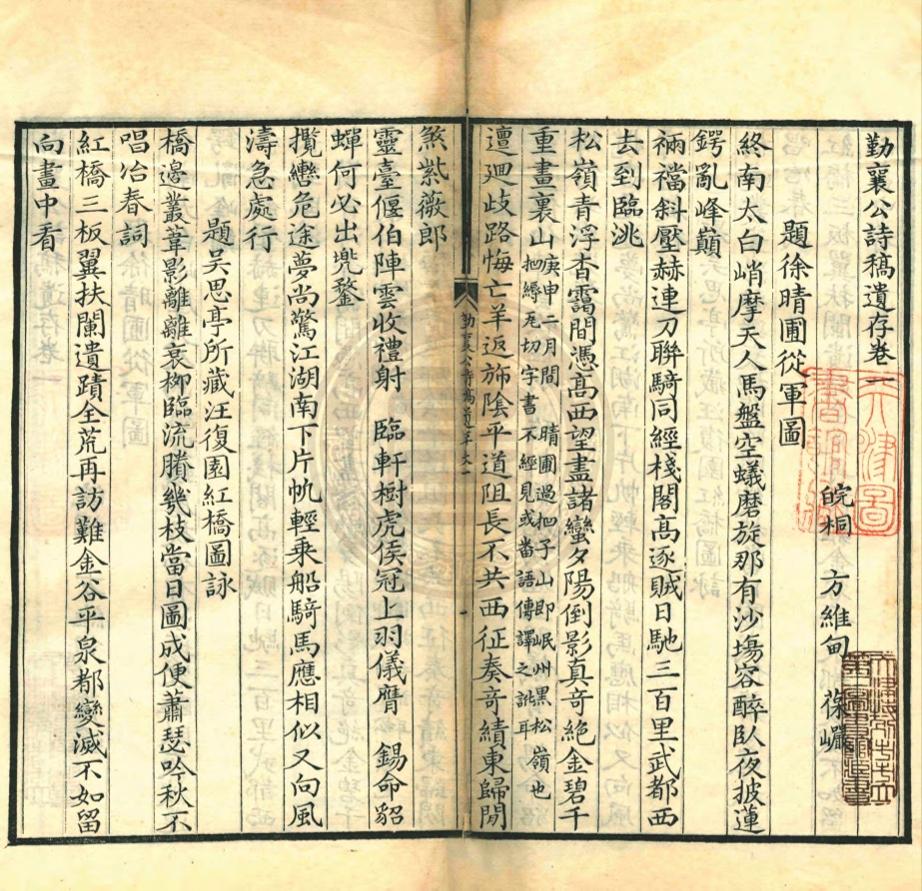 勤襄公詩稿遺存卷一
皖桐 方維甸 葆巖
題徐晴圃從軍圖
終南太白峭摩天人馬盤空蟻磨旋那有沙場容醉臥夜披蓮
鍔亂峰巔
裲襠斜壓赫連刀聯騎同經棧閣高逐賊日馳三百里武都西
去到臨洮
松嶺青浮杳靄間憑高西望盡諸蠻夕陽倒影真奇絕金碧千
重畫裏山庚申二月間晴圃過 子山即岷州黑松嶺也
切字書不經見或畨語傳譯之訛耳
邅迴歧路悔亡羊返斾陰平道阻長不共西征奏奇績東歸閒
煞紫薇郎
靈臺偃伯陣雲收禮射 臨軒樹虎侯冠上羽儀膺 錫命貂
蟬何必出兜鍪
攬轡危途夢尚驚江湖南下片帆輕乘船騎馬應相似又向風
濤急處行
題吳思亭所藏汪復園紅橋圖詠
橋邊叢葦影離離衰柳臨流賸幾枝當日圖成便蕭瑟吟秋不
唱冶春詞
紅橋三板翼扶闌遺蹟全荒再訪難金谷平泉都變滅不如留
向畫中看
勤襄公詩稿遺存卷一
一